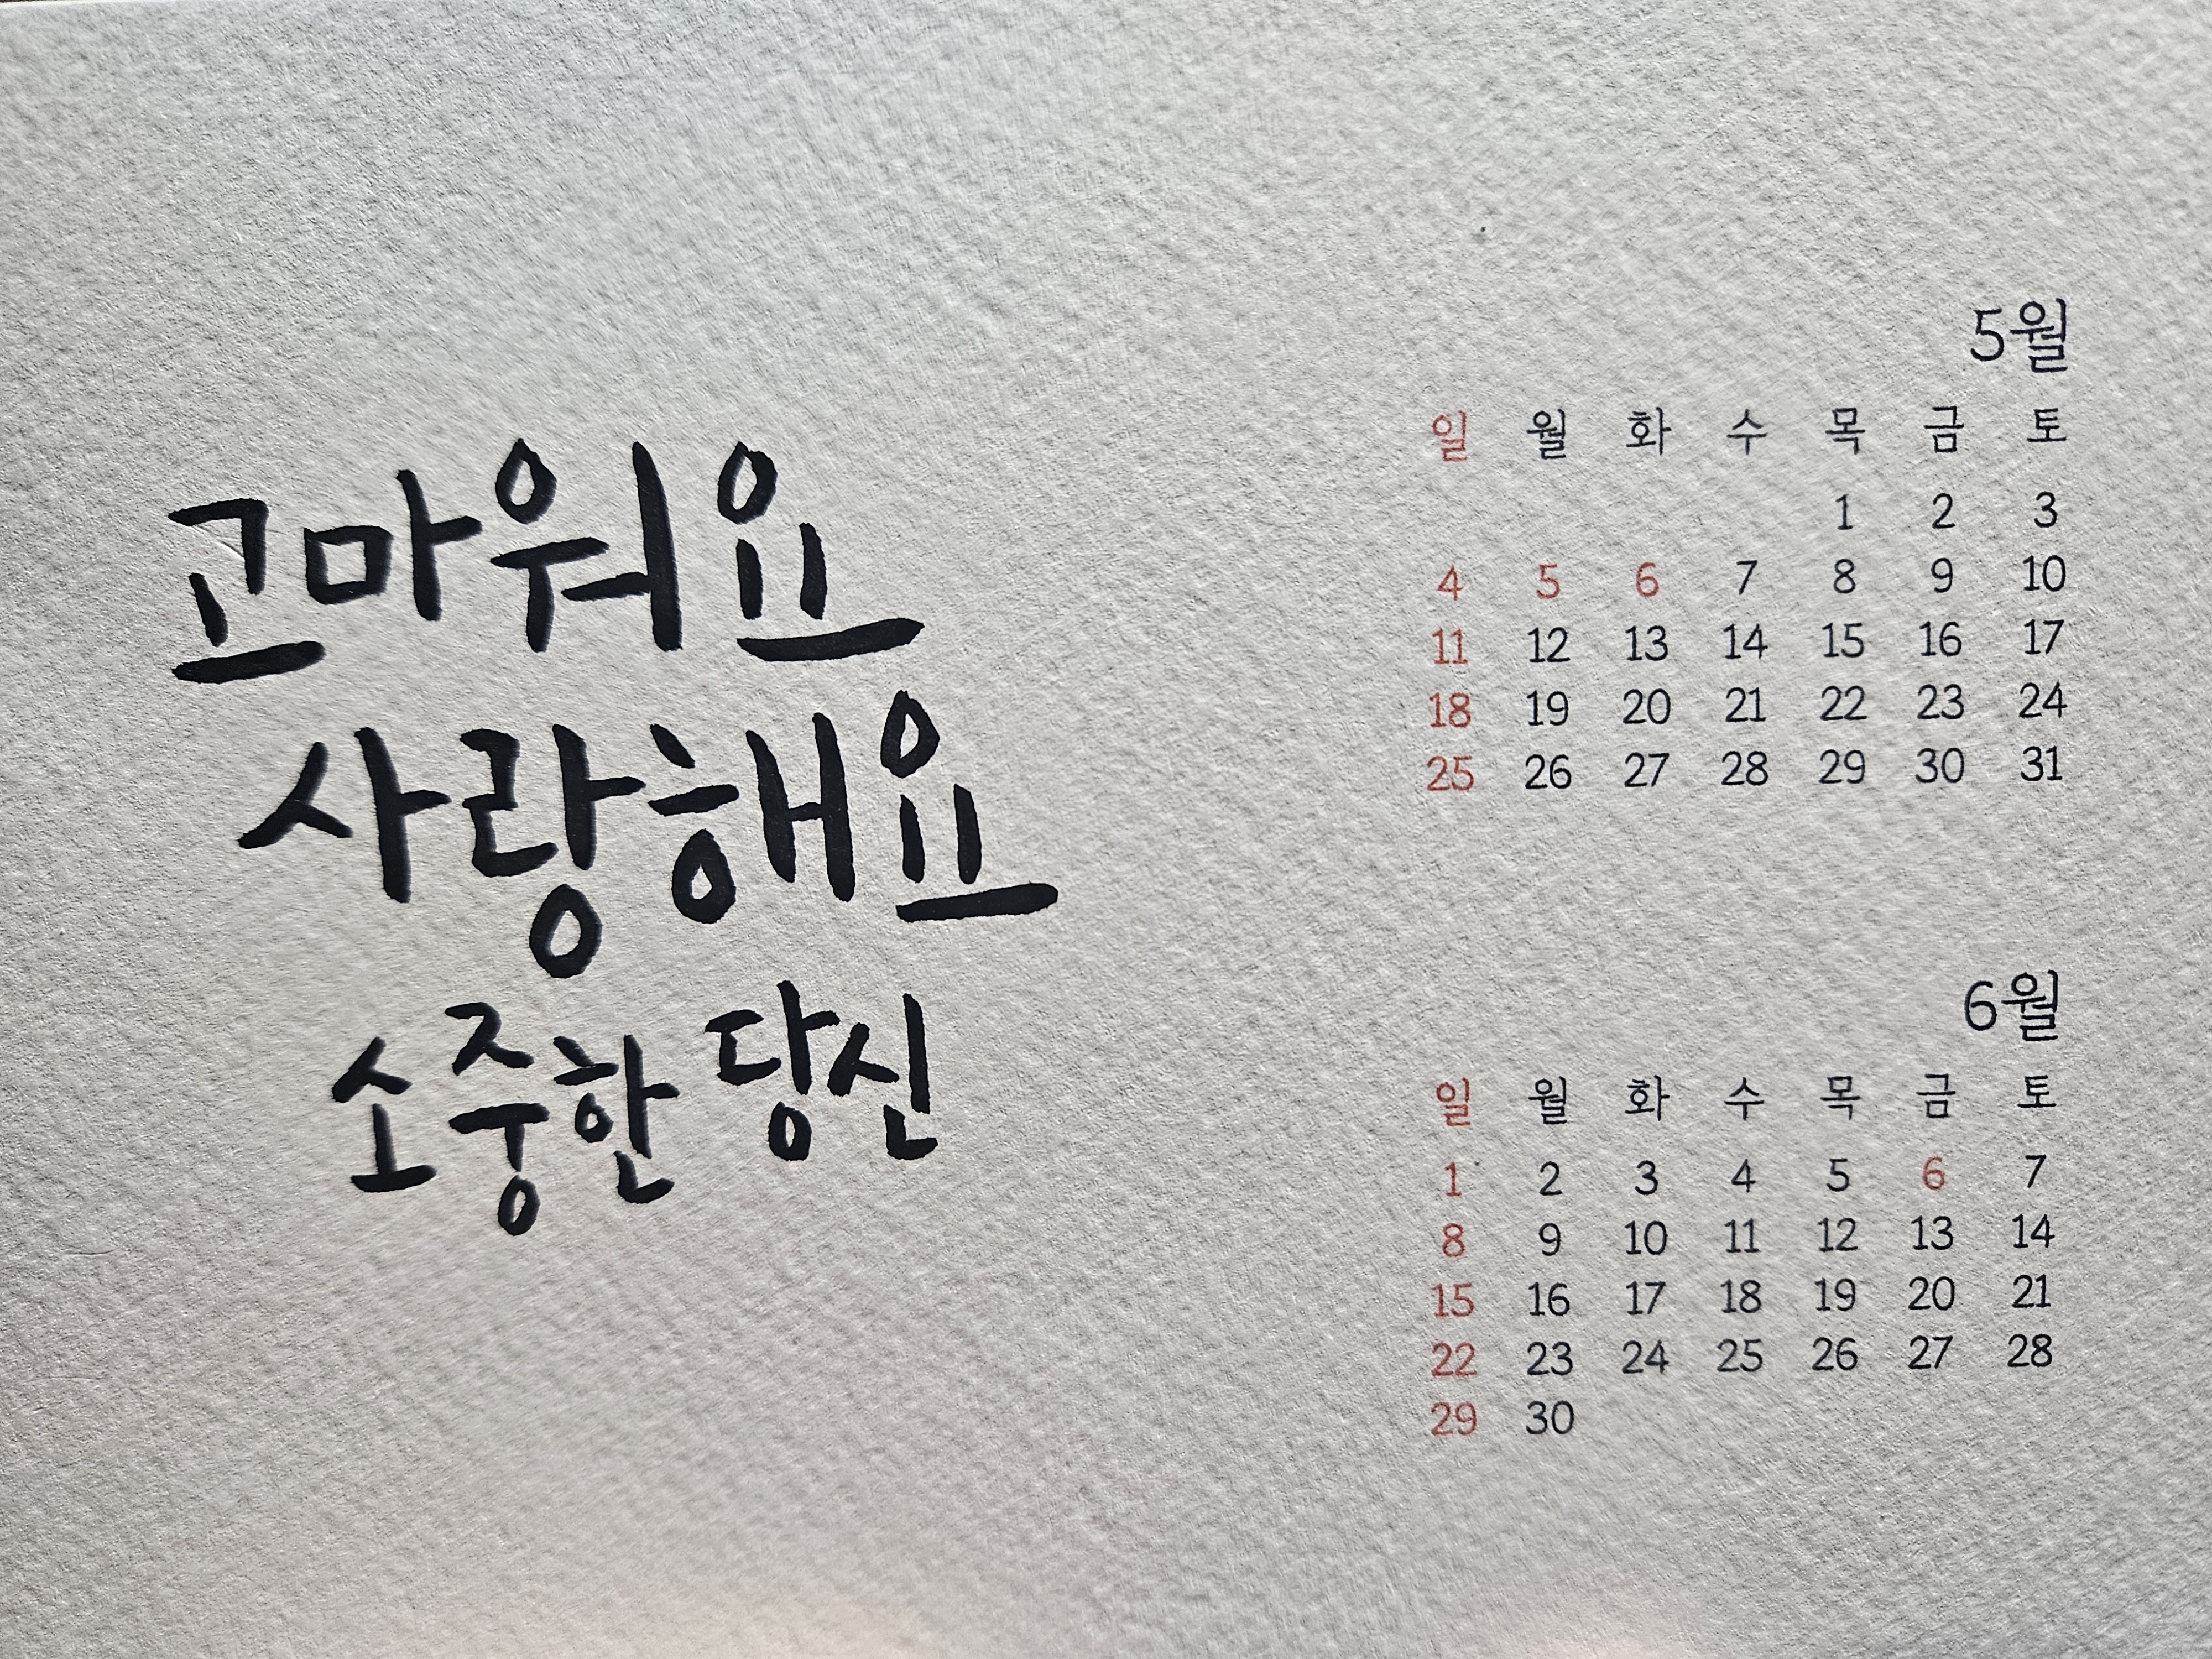 고마워요
사랑해요
소중한 당신
5월
일 월 화 수 목 금 토
1 2 3
4 5 6 7 8 9 10
11 12 13 14 15 16 17
18 19 20 21 22 23 24
25 26 27 28 29 30 31
6월
일 월 화 수 목 금 토
1 2 3 4 5 6 7
8 9 10 11 12 13 14
15 16 17 18 19 20 21
22 23 24 25 26 27 28
29 30